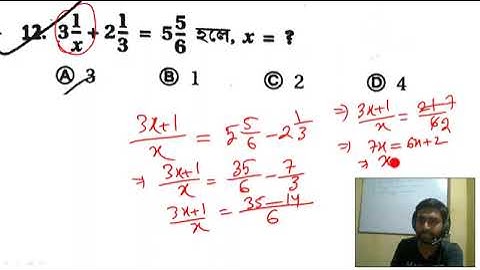 12. 3 1/x + 2 1/3 = 5 5/6 হলে, x = ?
Ⓐ 3 Ⓑ 1 Ⓒ 2 Ⓓ 4
(3x+1)/x = 5 5/6 - 2 1/3
⇒ (3x+1)/x = 35/6 - 7/3
(3x+1)/x = (35-14)/6
⇒ (3x+1)/x = 21 7/62
⇒ 7x = 6x+2
⇒ x